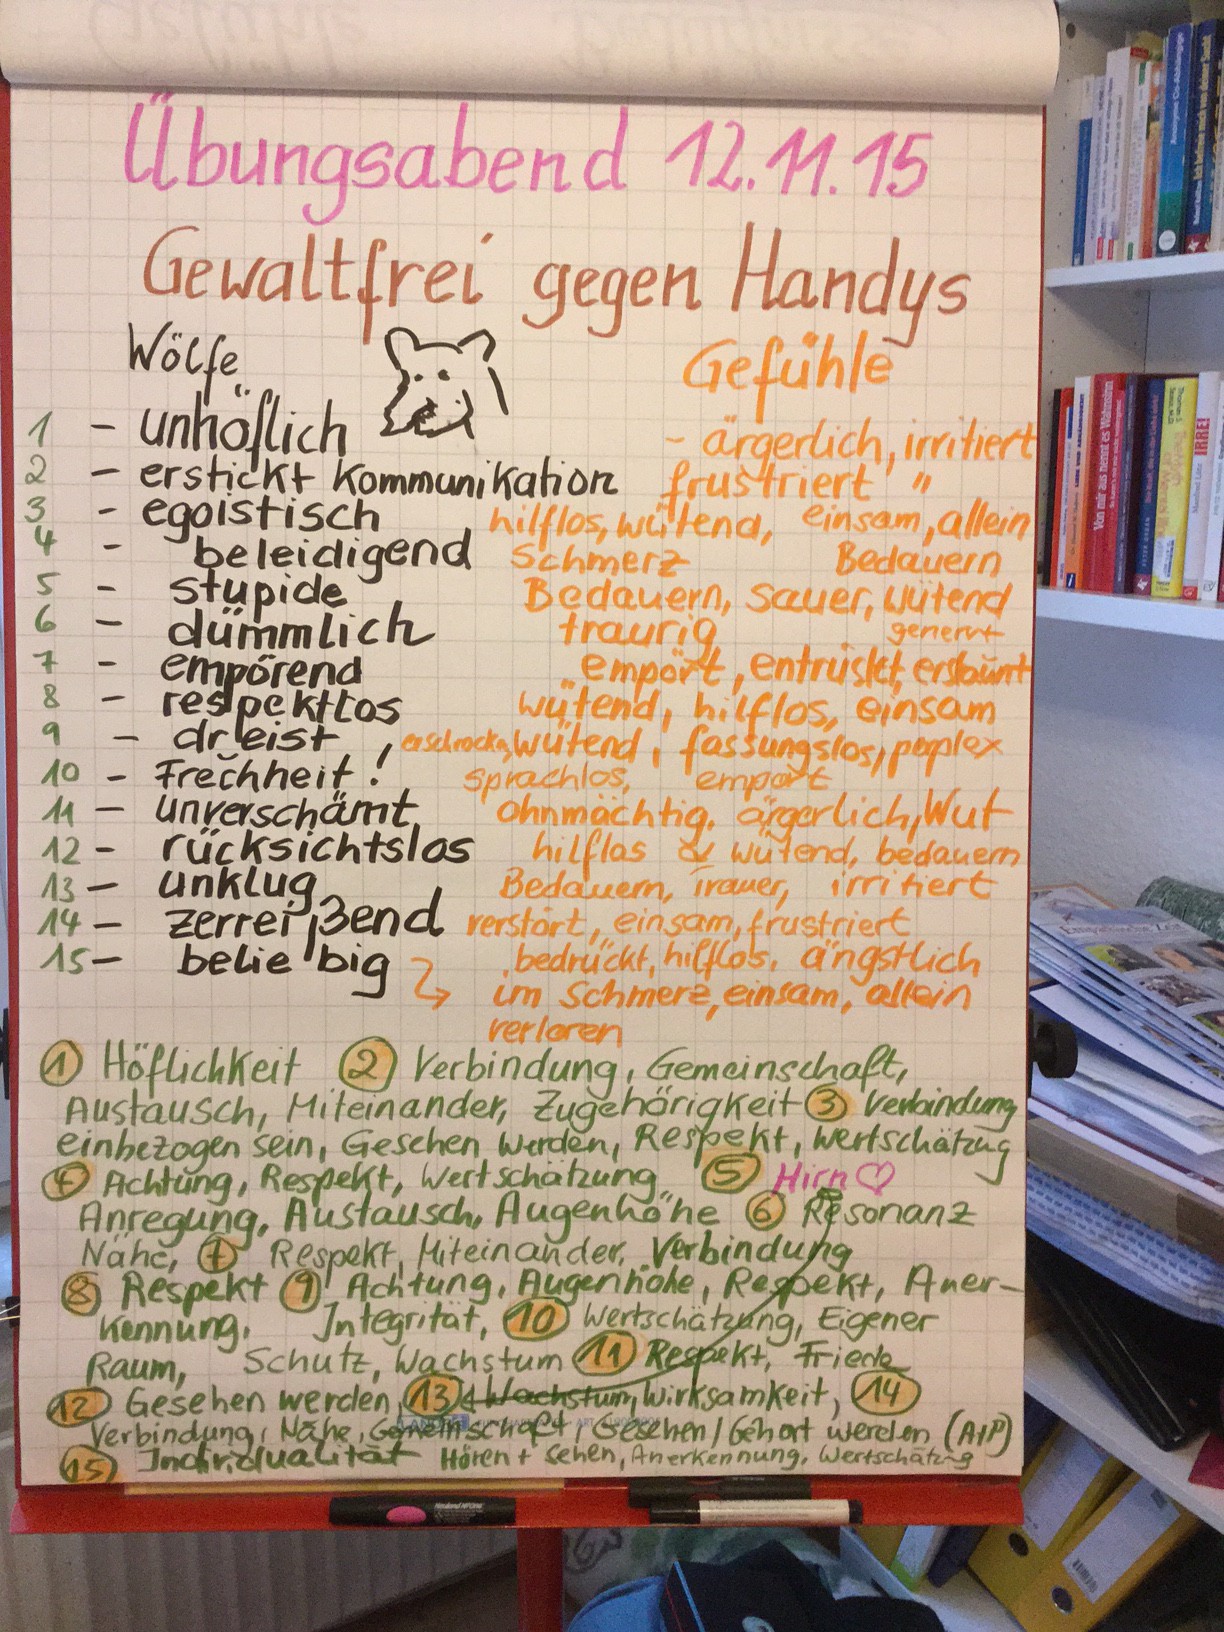 Übungsabend 12.11.15
Gewaltfrei gegen Handys
Wölfe Gefühle
1 - unhöflich - ärgerlich, irritiert
2 - erstickt Kommunikation frustriert "
3 - egoistisch hilflos, wütend, einsam, allein
4 - beleidigend Schmerz Bedauern
5 - stupide Bedauern, sauer, wütend
6 - dümmlich traurig genervt
7 - empörend empört, entrüstet, erstaunt
8 - respektlos wütend, hilflos, einsam
9 - dreist, erschrocken, wütend, fassungslos, perplex
10 - Frechheit! sprachlos, empört
11 - unverschämt ohnmächtig, ärgerlich, Wut
12 - rücksichtslos hilflos & wütend, bedauern
13 - unklug Bedauern, Trauer, irritiert
14 - zerreißend verstört, einsam, frustriert
15 - beliebig bedrückt, hilflos, ängstlich
im Schmerz, einsam, allein
verloren
1 Höflichkeit 2 Verbindung, Gemeinschaft,
Austausch, Miteinander, Zugehörigkeit 3 Verbindung
einbezogen sein, Gesehen werden, Respekt, Wertschätzug
4 Achtung, Respekt, Wertschätzung 5 Hirn ♡
Anregung, Austausch, Augenhöhe 6 Resonanz
Nähe, 7 Respekt, Miteinander, Verbindung
8 Respekt 9 Achtung, Augenhöhe, Respekt, Aner-
kennung, Integrität, 10 Wertschätzung, Eigener
Raum, Schutz, Wachstum 11 Respekt, Friede
12 Gesehen werden, 13 Wachstum, Wirksamkeit, 14
Verbindung, Nähe, Gemeinschaft, Gesehen/Gehört werden (A+P)
15 Individualität Hören + sehen, Anerkennung, Wertschätzg
Von mir aus nennt es Wahnsinn
IRRE!